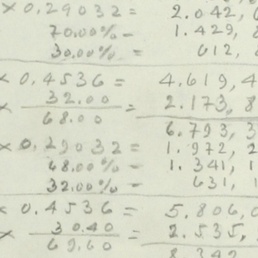 ×0.29032= 2.042,6
70.00%- 1.429,8
30.00%= 612,8
×0.4536= 4.619,4
×32.00= 2.173,8
68.00 6.793,3
×0.29032= 1.972,2
68.00%- 1.341,1
32.00%- 631,1
×0.4536= 5.806,0
×30.40= 2.535,
69.60 8.342